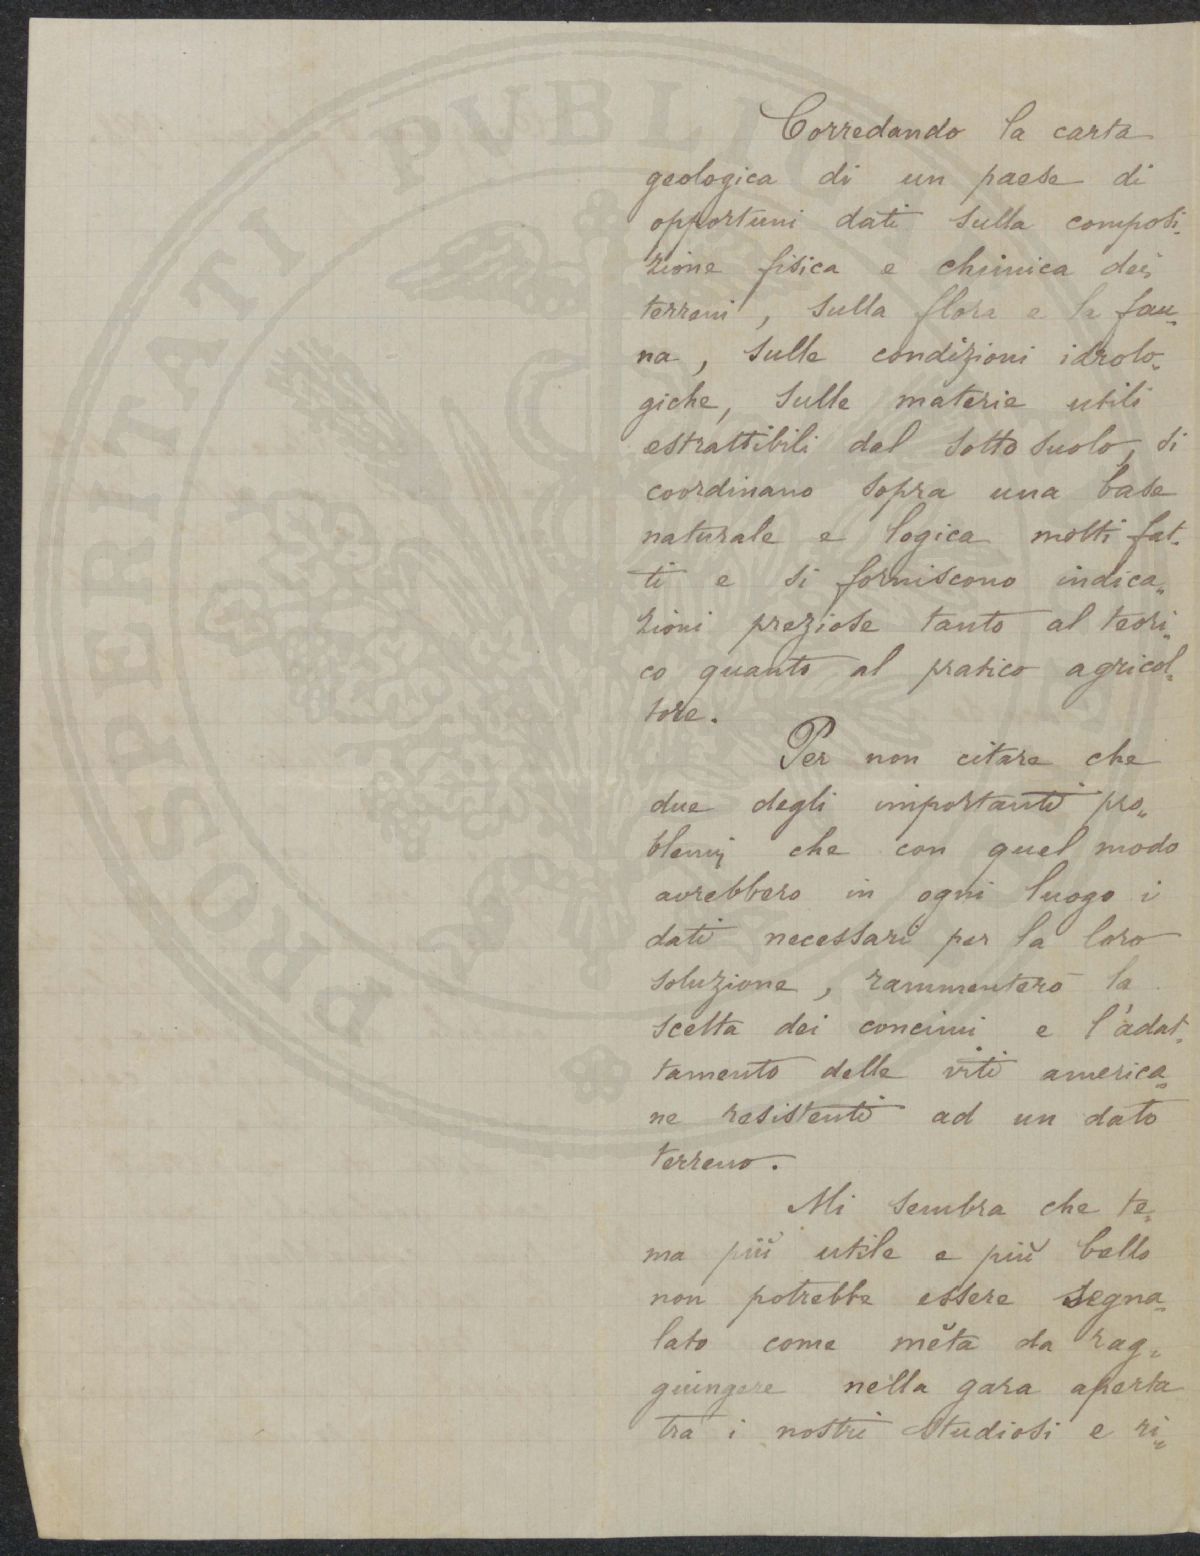 Corredando la carta
geologica di un paese di
opportuni dati sulla composi-
zione fisica e chimica dei
terreni, sulla flora e la fau-
na, sulle condizioni idrolo-
giche, sulle materie utili
estrattibili dal sotto suolo, si
coordinano sopra una base
naturale e logica molti fat-
ti e si forniscono indica-
zioni preziose tanto al teori-
co quanto al pratico agricol-
tore.
Per non citare che
due degli importanti pro-
blemi che con quel modo
avrebbero in ogni luogo i
dati necessari per la loro
soluzione, rammenterò la
scelta dei concimi e l'adat-
tamento delle viti america-
ne resistenti ad un dato
terreno.
Mi sembra che te-
ma più utile e più bello
non potrebbe essere segna-
lato come mèta da rag-
giungere nella gara aperta
tra i nostri studiosi e ri-
PROSPERITATI PUBLICAE